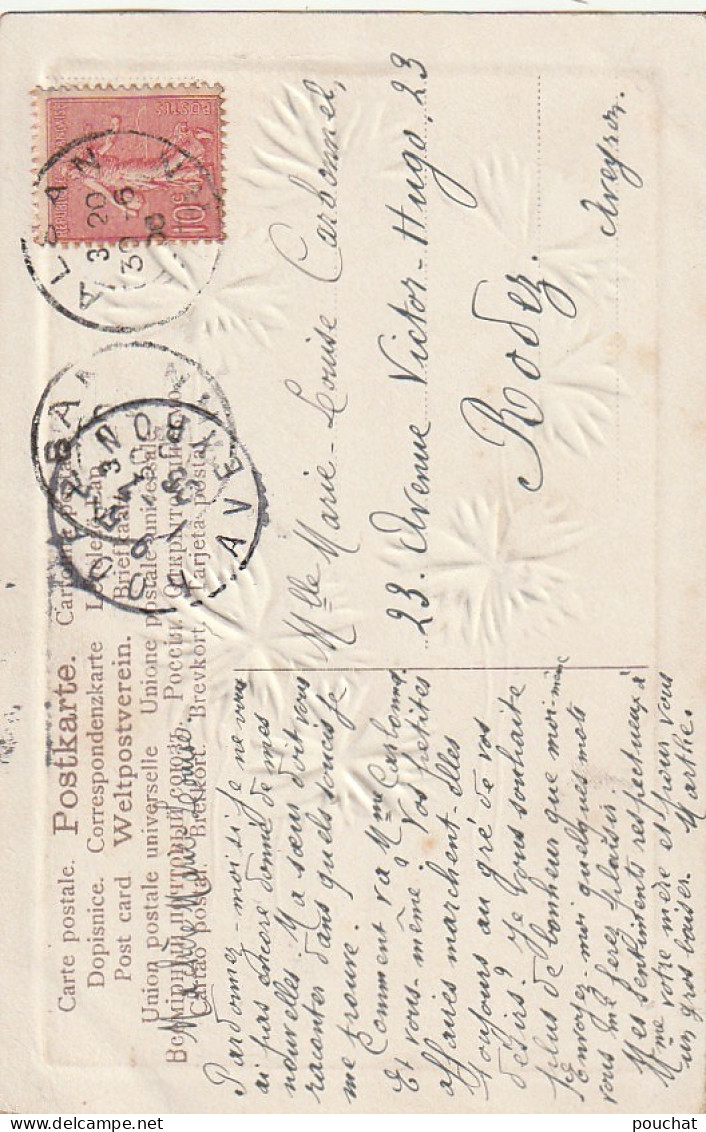 Carte postale. Postkarte.
Dopisnice. Correspondenzkarte
Post card Weltpostverein.
Union postale universelle Unione postale universale
Всемірный почтовый союзъ Россіи. Открытое
Cartão postal. Breskort. Brevkort. Tarjeta postal
REPUBLIQUE FRANÇAISE
POSTES
10c
ALBAN
3 20
30 6
06
ALBAN
RODEZ
AVEYRON
Mlle Marie-Louise Carbonnel,
23. Avenue Victor-Hugo, 23
Rodez.
Aveyron.
Ma chère Marie-Louise.
Pardonnez-moi si je ne vous
ai pas encore donné de mes
nouvelles. Ma sœur doit vous
raconter dans quels soucis je
me trouve.
Comment va Mme Carbonnel.
Et vous-même? Vos petites
affaires marchent-elles
toujours au gré de vos
désirs? Je vous souhaite
plus de bonheur que moi-même
Envoyez-moi quelques mots
vous me ferez plaisir.
Mes sentiments respectueux à
Mme votre mère et pour vous
un gros baiser. Marthe.
pouchat